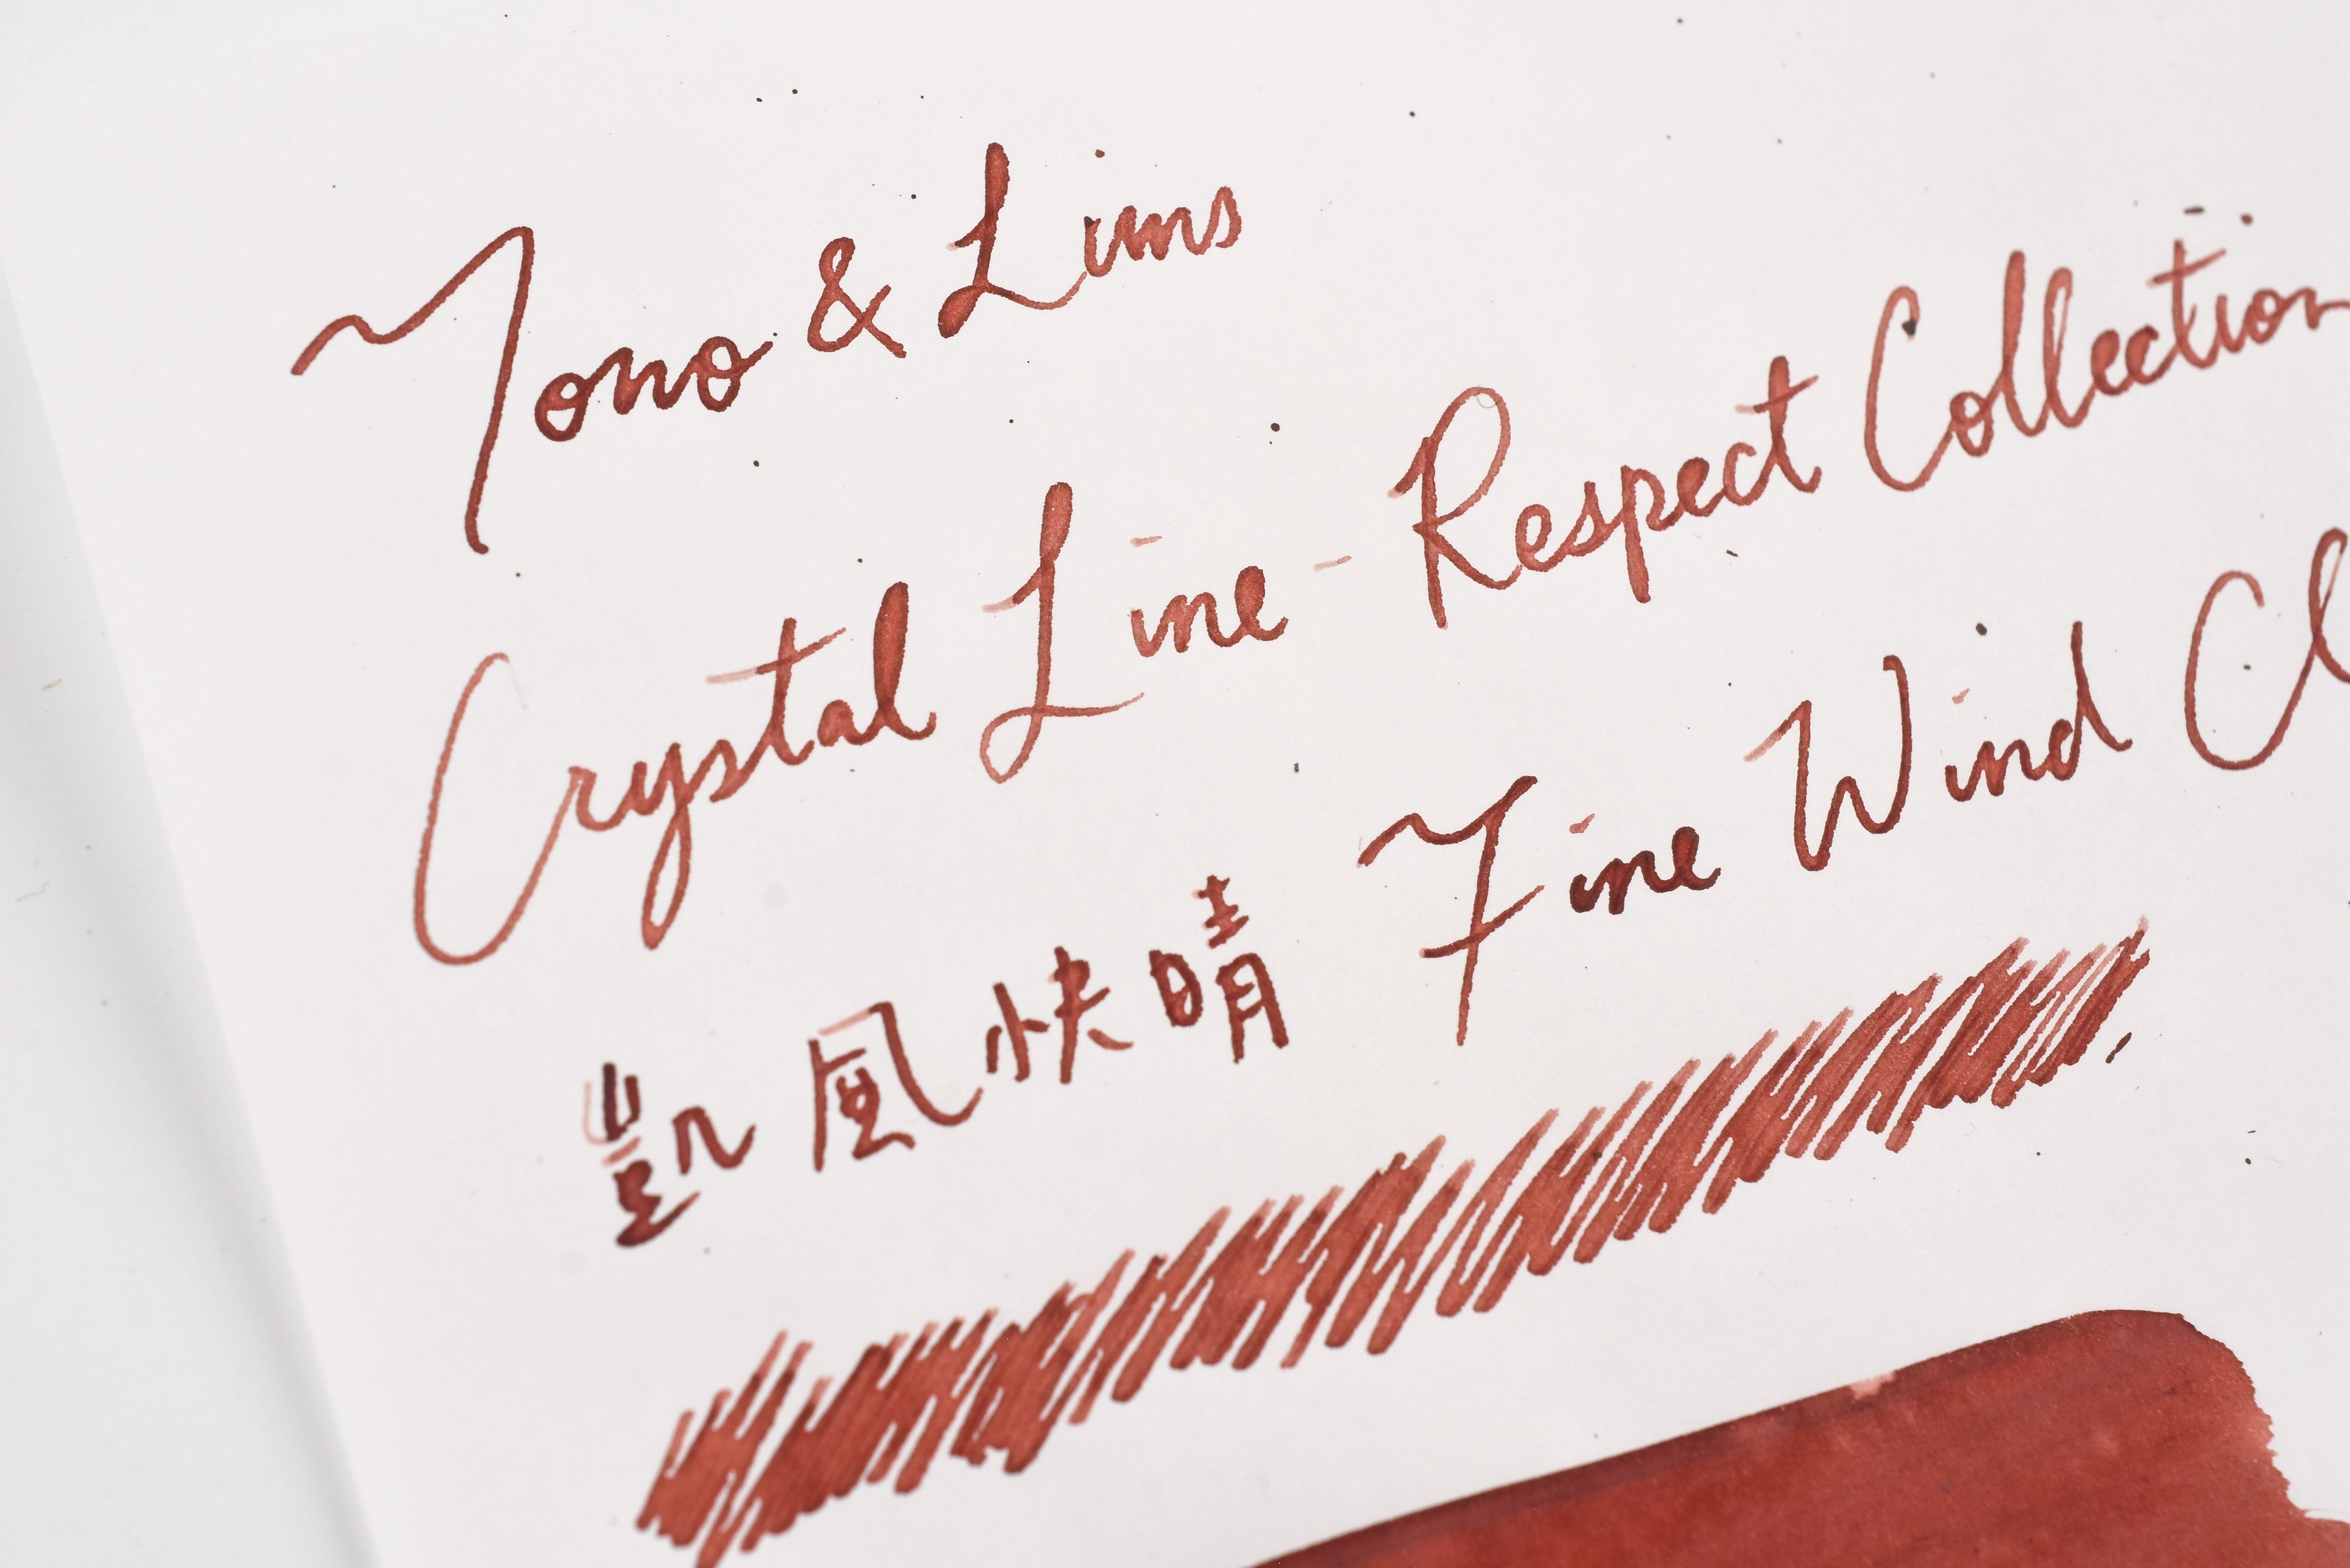 Tono & Lims
Crystal Line - Respect Collection
凱風快晴 Fine Wind Cl